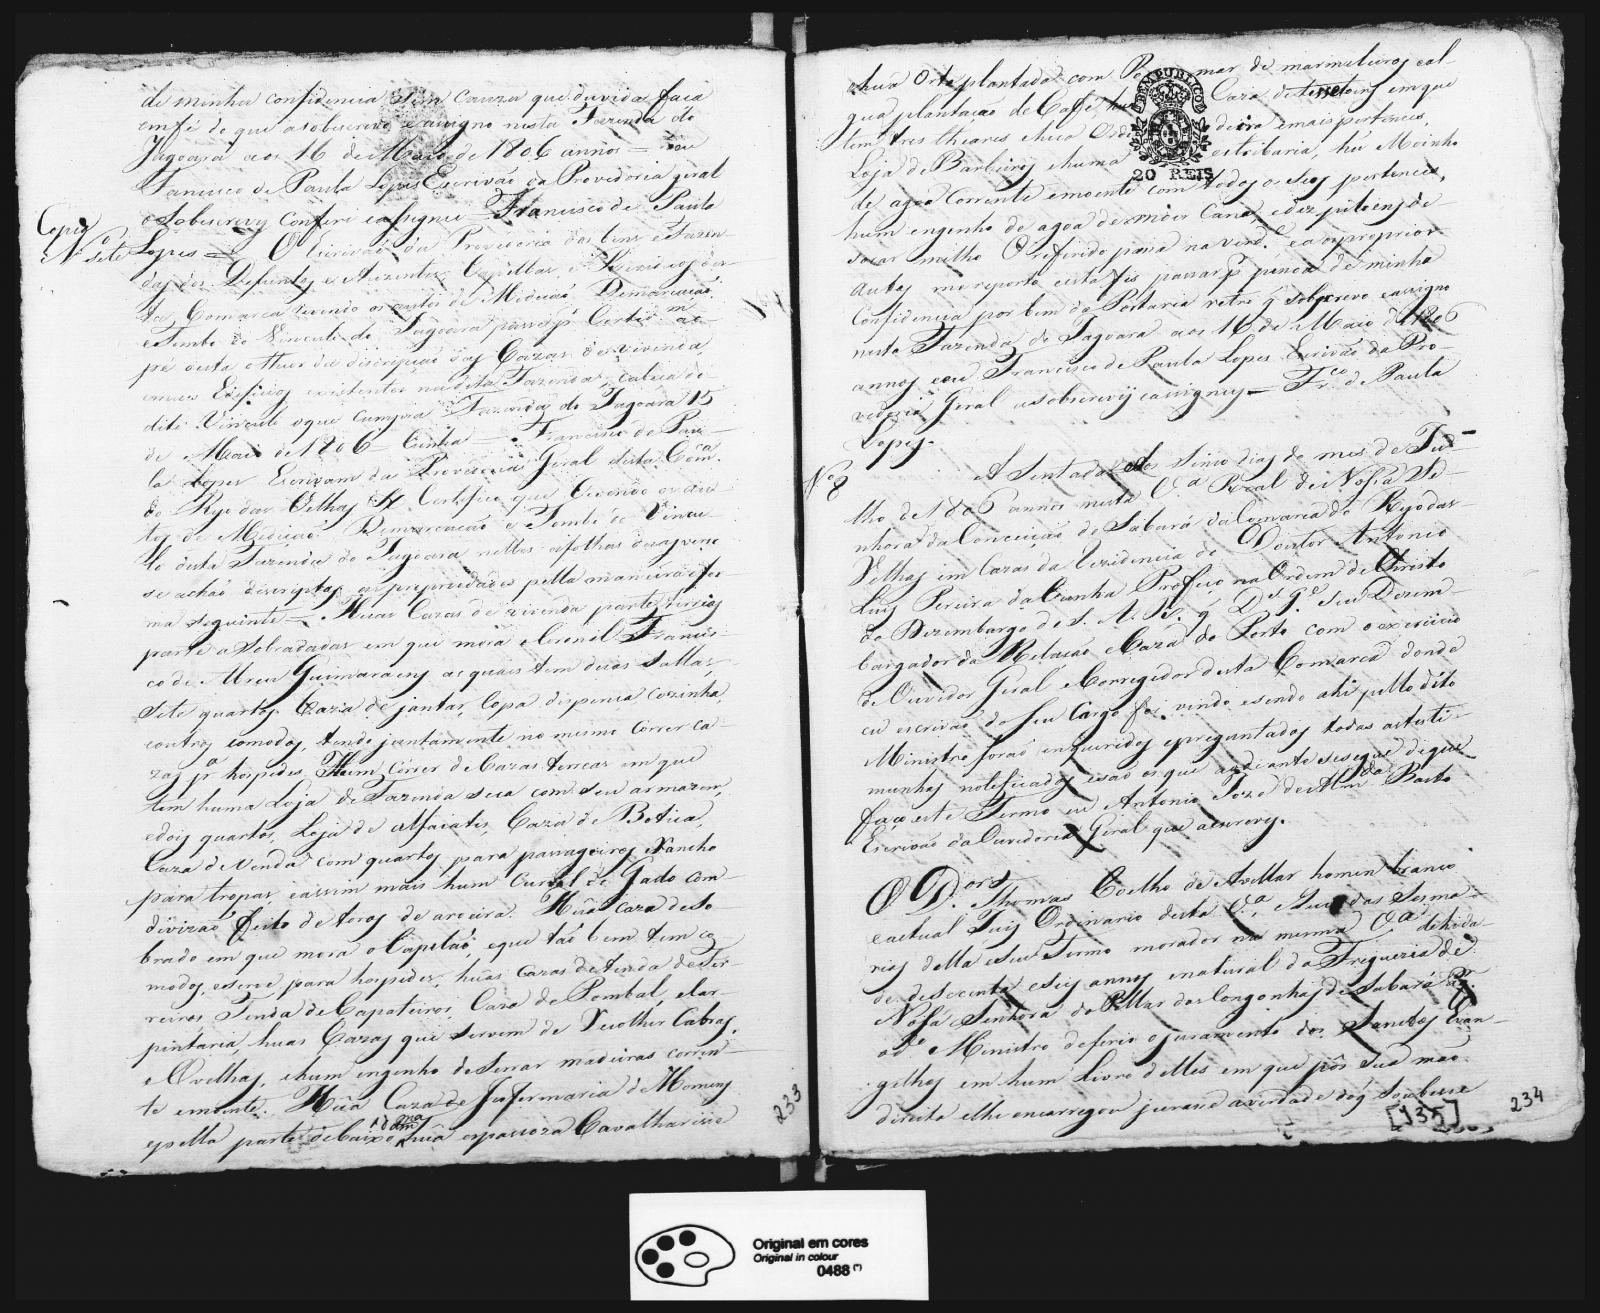 de minha confidencia sem cauza que duvida faça
emfé do que a sobscrevo e assigno nesta Fazenda do
Jagoara aos 16 de Maio de 1806 annos = eu
Francisco de Paula Lopes Escrivão da Provedoria geral
o sobscrevy conferi e assignei = Francisco de Paula
Copia
Nº sete
Lopes = O Escrivão da Provedoria dos bens e Fazen-
das dos Defuntos e Auzentes Capellas e Reziduos des-
ta Comarca revendo os autos de Medição Demarcação
e Tombo do Vinculo do Jagoara passe p Certidam ao
pé desta o theor da discripção das Cazas de vivenda
e mais Edificios existentes na dita Fazenda cabeça do
dito Vinculo o que cumpra Fazenda do Jagoara 15
de Maio de 1806 Cunha = Francisco de Pau-
la Lopes Escrivam da Provedoria Geral desta Comca.
do Rio das Velhas & Certifico que revendo os au-
tos de Medição Demarcação e Tombo do Vincu-
lo desta Fazenda do Jagoara nelles afolhas
se achão descriptas as propriedades pella maneira e for
ma seguinte = Huas Cazas de vivenda parte terrias
parte assobradadas em que mora o Coronel Francis-
co de Abreu Guimaraens as quais tem duas Sallas,
sete quartos Caza de jantar, Copa dispensa, cozinha,
e outros comodos, tendo juntamente no mesmo Correr ca
zas pa hospedes, Hum Córrer de Cazas terreas em que
tem huma Loja de Fazenda seca com seu armazem,
e dois quartos, Loja de Alfaiate, Caza de Botica,
Caza de Venda com quartos para passageiros e Rancho
para tropas, e assim mais hum Curral de Gado com
divizão feito de toros de aroeira. Húa caza de So-
brado em que mora o Capelão, e que tão bem tem co
modos, e serve para hospedes, huas Cazas de tenda de Fer
reiros Tenda de Capateiros, Caza do Pombal, e Car
pintaria, huas Cazas que servem de recolher Cabras,
e Ovelhas, e hum engenho de Serrar madeiras corren-
te emoente. Húa Caza de Infermaria de Homens
e pella parte de baixo húa espassoza Cavalharisse
233
e hua Orta plantada com Po mar de marmeleiros e al-
gua plantação de Caffé hua Caza de em que
tem tres theares e hua deira e mais pertences,
Loja de Barbeiro e huma estribaria, hú Moinho
de agoa Corrente emoente com todos os seus pertences,
hum engenho de agoa de moer Cana, e dez pilens de
socar milho O referido passa na verde. e aos proprios
Autos me reporto e esta fis passar p prencá de minha
Confidencia por bem da Portaria retro q sobscrevo e assigno
nesta Fazenda do Jagoara aos 16 de Maio de 1806
annos e eu Francisco de Paula Lopes Escrivão da Pro-
vedoria Geral a sobscrevy e assigney = Frco. de Paula
Lopes.
Nº 8
A Sentada Aos sinco dias do mes de Ju-
lho de 1806 annos nesta Va Real de Nossa Se-
nhora da Conceição do Sabará da Comarca do Rio das
Velhas em Cazas da rezidencia do Doutor Antonio
Luis Pereira da Cunha Profeço na Ordem de Christo
do Dezembargo de S. A. R. q Ds Ge seu Dezem-
bargador da Relação e Caza do Porto com o exercicio
de Ouvidor Geral e Corregedor desta Comarca donde
eu escrivão do Seu Cargo foi vindo, e sendo ahi pello dito
Ministro forão enqueridos e preguntados todas as testi-
munhas notificadas e são as que ao diante se segue de que
faço este Termo eu Antonio Jozé de Almda Basto
Escrivão da Ouvedoria Geral que a escrevy.
O Dor. Thomas Coelho de Avellar homem branco
e actual Juiz Ordinario desta Va, e Juiz das Sesma-
rias della e Seu Termo morador na mesma Va de hida-
de de secenta e seis annos e natural da Freguezia de
Nossa Senhora do Pillar das Congonhas de Sabará
odo Ministro deferio o juramento dos Sanctos Evan-
gelhos em hum Livro delles em que pôs sua mão
direita e lhe encarregou jurase a verdade do q Soubese
REPUBLICO
20 REIS
[135]
234
Original em cores
Original in colour
0488 (*)